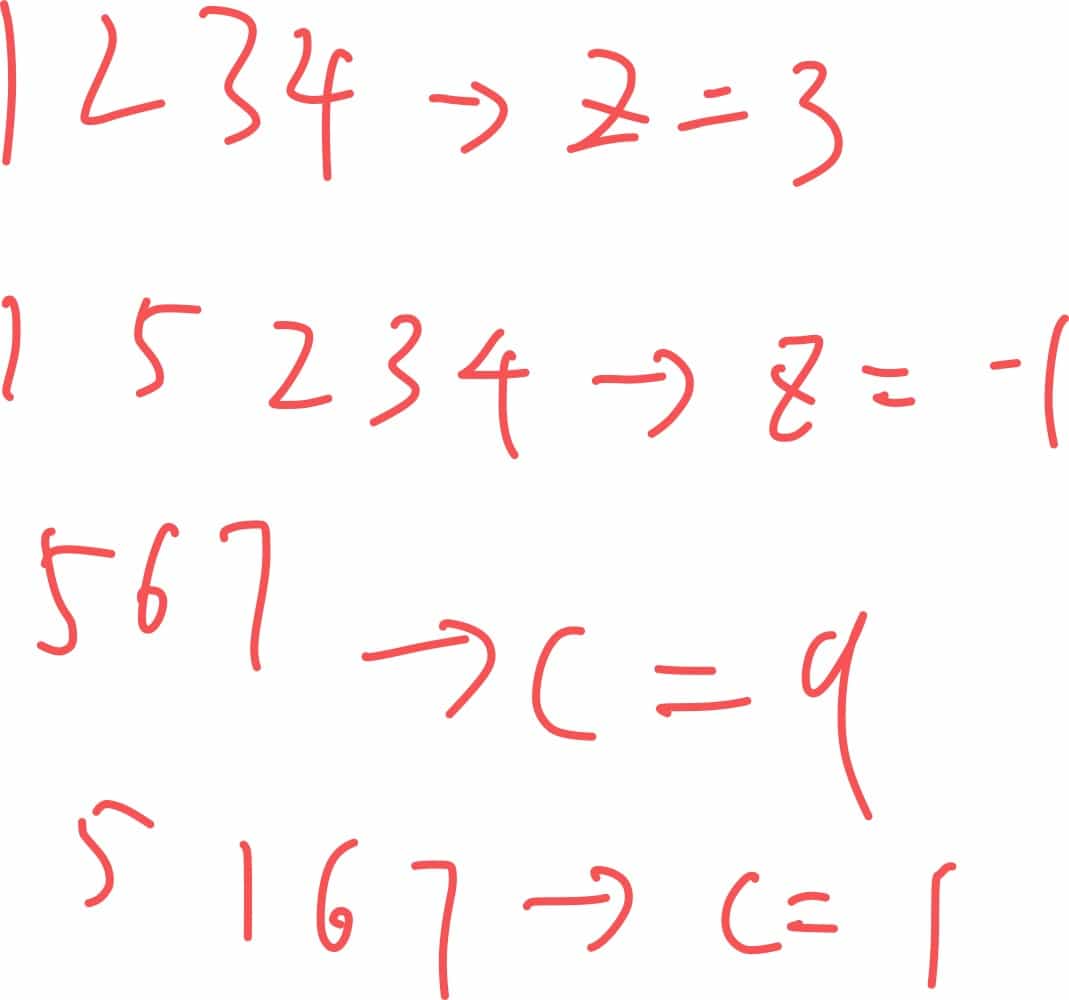 1 2 3 4 → z = 3
1 5 2 3 4 → z = -1
5 6 7 → c = 9
5 1 6 7 → c = 1